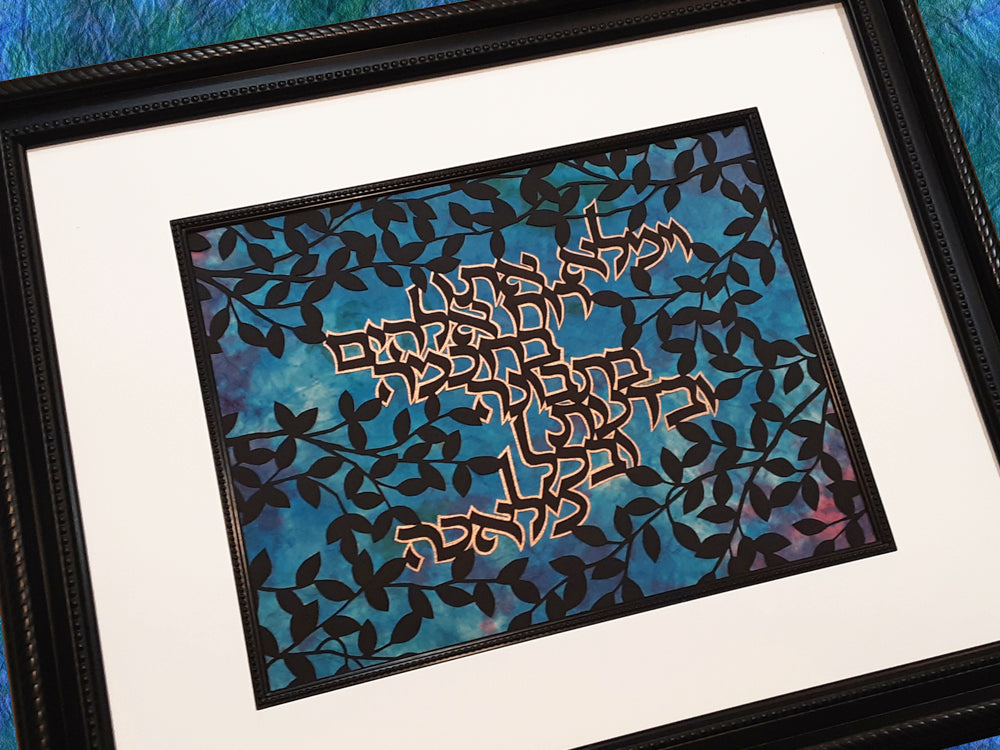 וימלא
אתו
רוח אלהים
בחכמה
בתבונה
ובדעת
ובכל
מלאכה